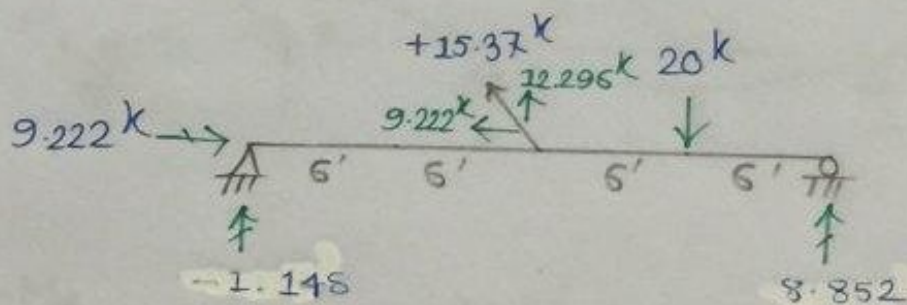 +15.37 K
12.296 K 20 K
9.222 K 9.222 K
6' 6' 6' 6'
-1.148 8.852